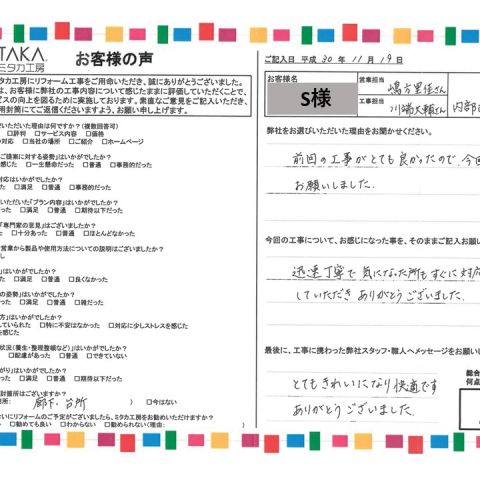 TAKA
ミタカ工房
お客様の声
タカ工房にリフォーム工事をご用命いただき、誠にありがとうございました。
は、お客様に弊社の工事内容について感じたままに評価していただくことで、
ビスの向上を図るために実施しております。素直なご意見をご記入いただき、
用封筒にてご返信くださいますよう、お願い申し上げます。
いただいた理由は何ですか？（複数回答可）
□評判 □サービス内容 □価格
□当社の場所 □ご紹介 □ホームページ
ご提案に対する姿勢はいかがでしたか？
感じた □一生懸命だった □普通 □事務的だった
対応はいかがでしたか？
た □満足 □普通 □事務的だった
いただいた「プラン内容」はいかがでしたか？
った □満足 □普通 □期待以下だった
「専門家の意見」はございましたか？
た □十分あった □普通 □ほとんどなかった
営業から製品や使用方法についての説明はございましたか？
」はいかがでしたか？
た □満足 □普通 □良くなかった
の姿勢」はいかがでしたか？
た □満足 □普通 □雑だった
方」はいかがでしたか？
していられた □特に不安はなかった □対応に少しストレスを感じた
を感じた
状況（養生・整理整頓など）」はいかがでしたか？
□配慮があった □普通 □できていない
がり」はいかがでしたか？
った □満足 □普通 □期待以下だった
討箇所はございますか？
所： 廊下、台所 ） □今はない
はいにリフォームのご予定がございましたら、ミタカ工房をお勧めいただけますか？
□勧めても良い □わからない □勧められない（理由：
ご記入日 平成 30 年 11 月 19 日
お客様名
S様
営業担当
嶋方里佳さん
工事担当
川端大輔さん
内部
弊社をお選びいただいた理由をお聞かせください。
前回の工事がとても良かったので、今回
お願いしました。
今回の工事について、お感じになった事を、そのままご記入お願い
迅速丁寧で気になった所もすぐに対応
していただきありがとうございました。
最後に、工事に携わった弊社スタッフ・職人へメッセージをお願いし
とてもきれいになり快適です
ありがとうございました。
総合
何点